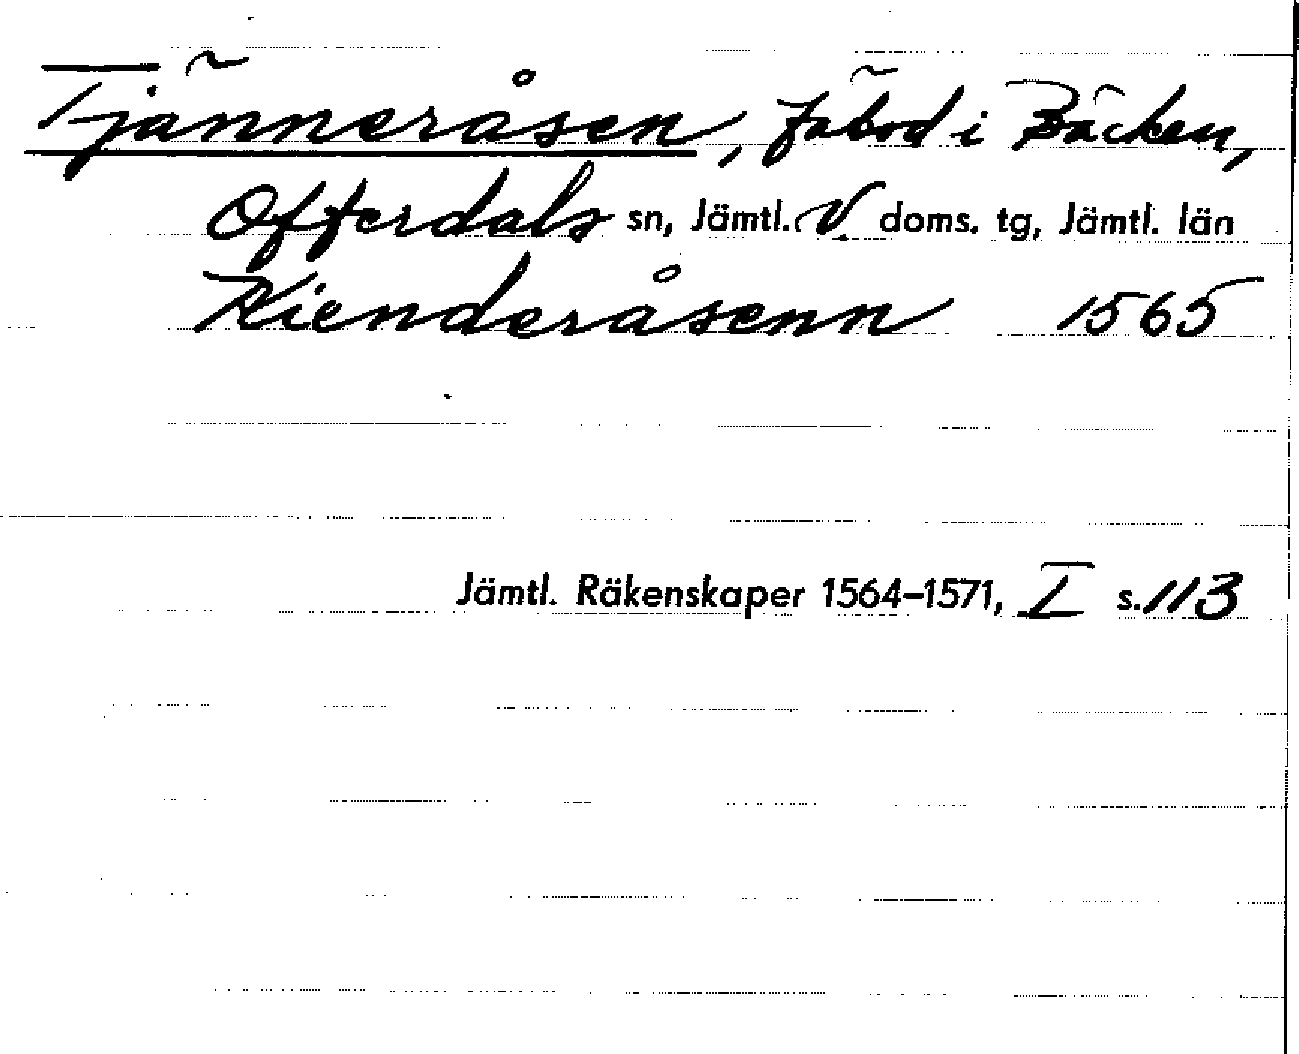 Tjänneråsen, fäbod i Bäcken,
Offerdals sn, Jämtl. V. doms. tg, Jämtl. län
Kienderåsenn 1565
Jämtl. Räkenskaper 1564–1571, I s. 113